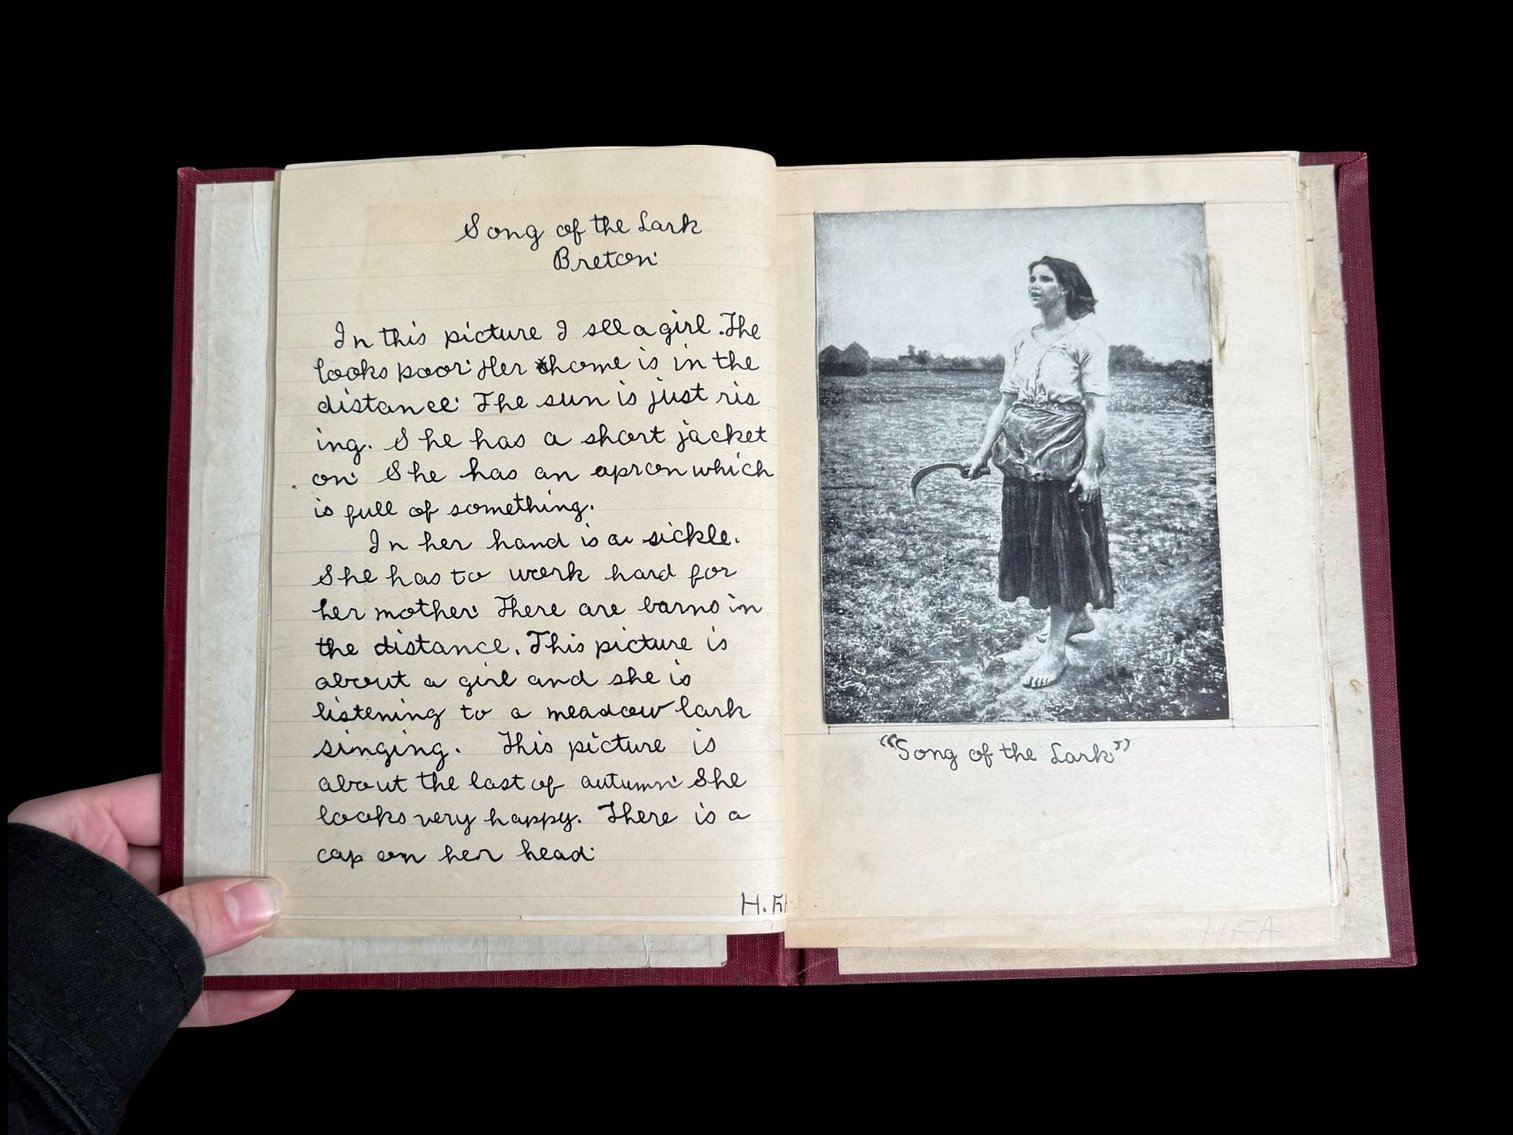 Song of the Lark
Breton.
In this picture I see a girl. The
looks poor. Her home is in the
distance. The sun is just ris
ing. She has a short jacket
on. She has an apron which
is full of something.
In her hand is a sickle.
She has to work hard for
her mother. There are barns in
the distance. This picture is
about a girl and she is
listening to a meadow lark
singing. This picture is
about the last of autumn. She
looks very happy. There is a
cap on her head.
H.
"Song of the Lark."
HFA